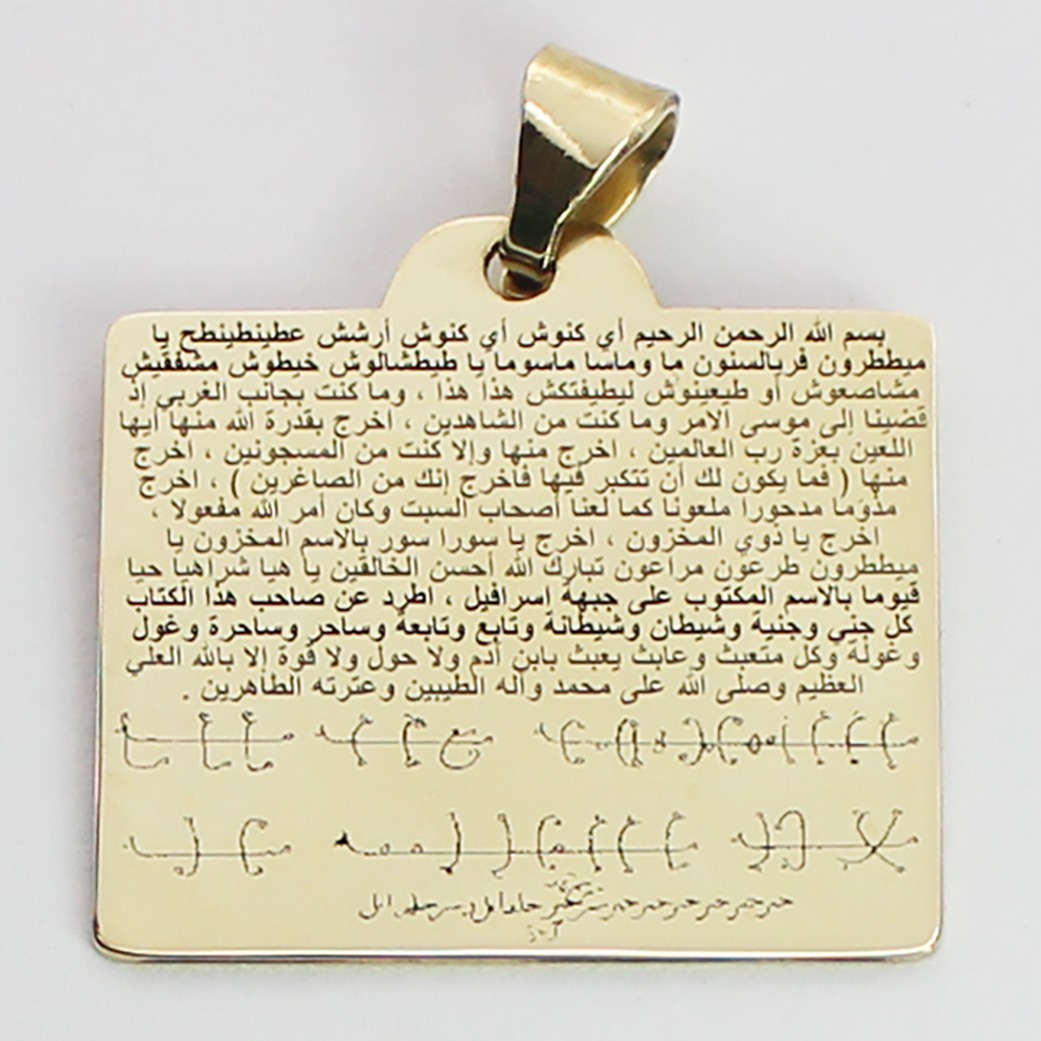 بسم الله الرحمن الرحيم أي كنوش أي كنوش أرشش عطينطينطح يا
ميططرون فربالسنون ما وماسا ماسوما يا طيطشالوش خيطوش مشفقيش
مشاصعوش أو طيعينوش ليطيفتكش هذا هذا ، وما كنت بجانب الغربي إذ
قضينا إلى موسى الامر وما كنت من الشاهدين ، اخرج بقدرة الله منها أيها
اللعين بعزة رب العالمين ، اخرج منها وإلا كنت من المسجونين ، اخرج
منها ( فما يكون لك أن تتكبر فيها فأخرج إنك من الصاغرين ) ، اخرج
مذؤما مدحورا ملعونا كما لعنا أصحاب السبت وكان أمر الله مفعولا ،
اخرج يا ذوي المخزون ، اخرج يا سورا سور بالاسم المخزون يا
ميططرون طرعون مراعون تبارك الله أحسن الخالقين يا هيا شراهيا حيا
قيوما بالاسم المكتوب على جبهة اسرافيل ، اطرد عن صاحب هذا الكتاب
كل جني وجنية وشيطان وشيطانة وتابع وتابعة وساحر وساحرة وغول
وغولة وكل متعبث وعابث يعبث بابن آدم ولا حول ولا قوة إلا بالله العلي
العظيم وصلى الله على محمد وآله الطيبين وعترته الطاهرين .